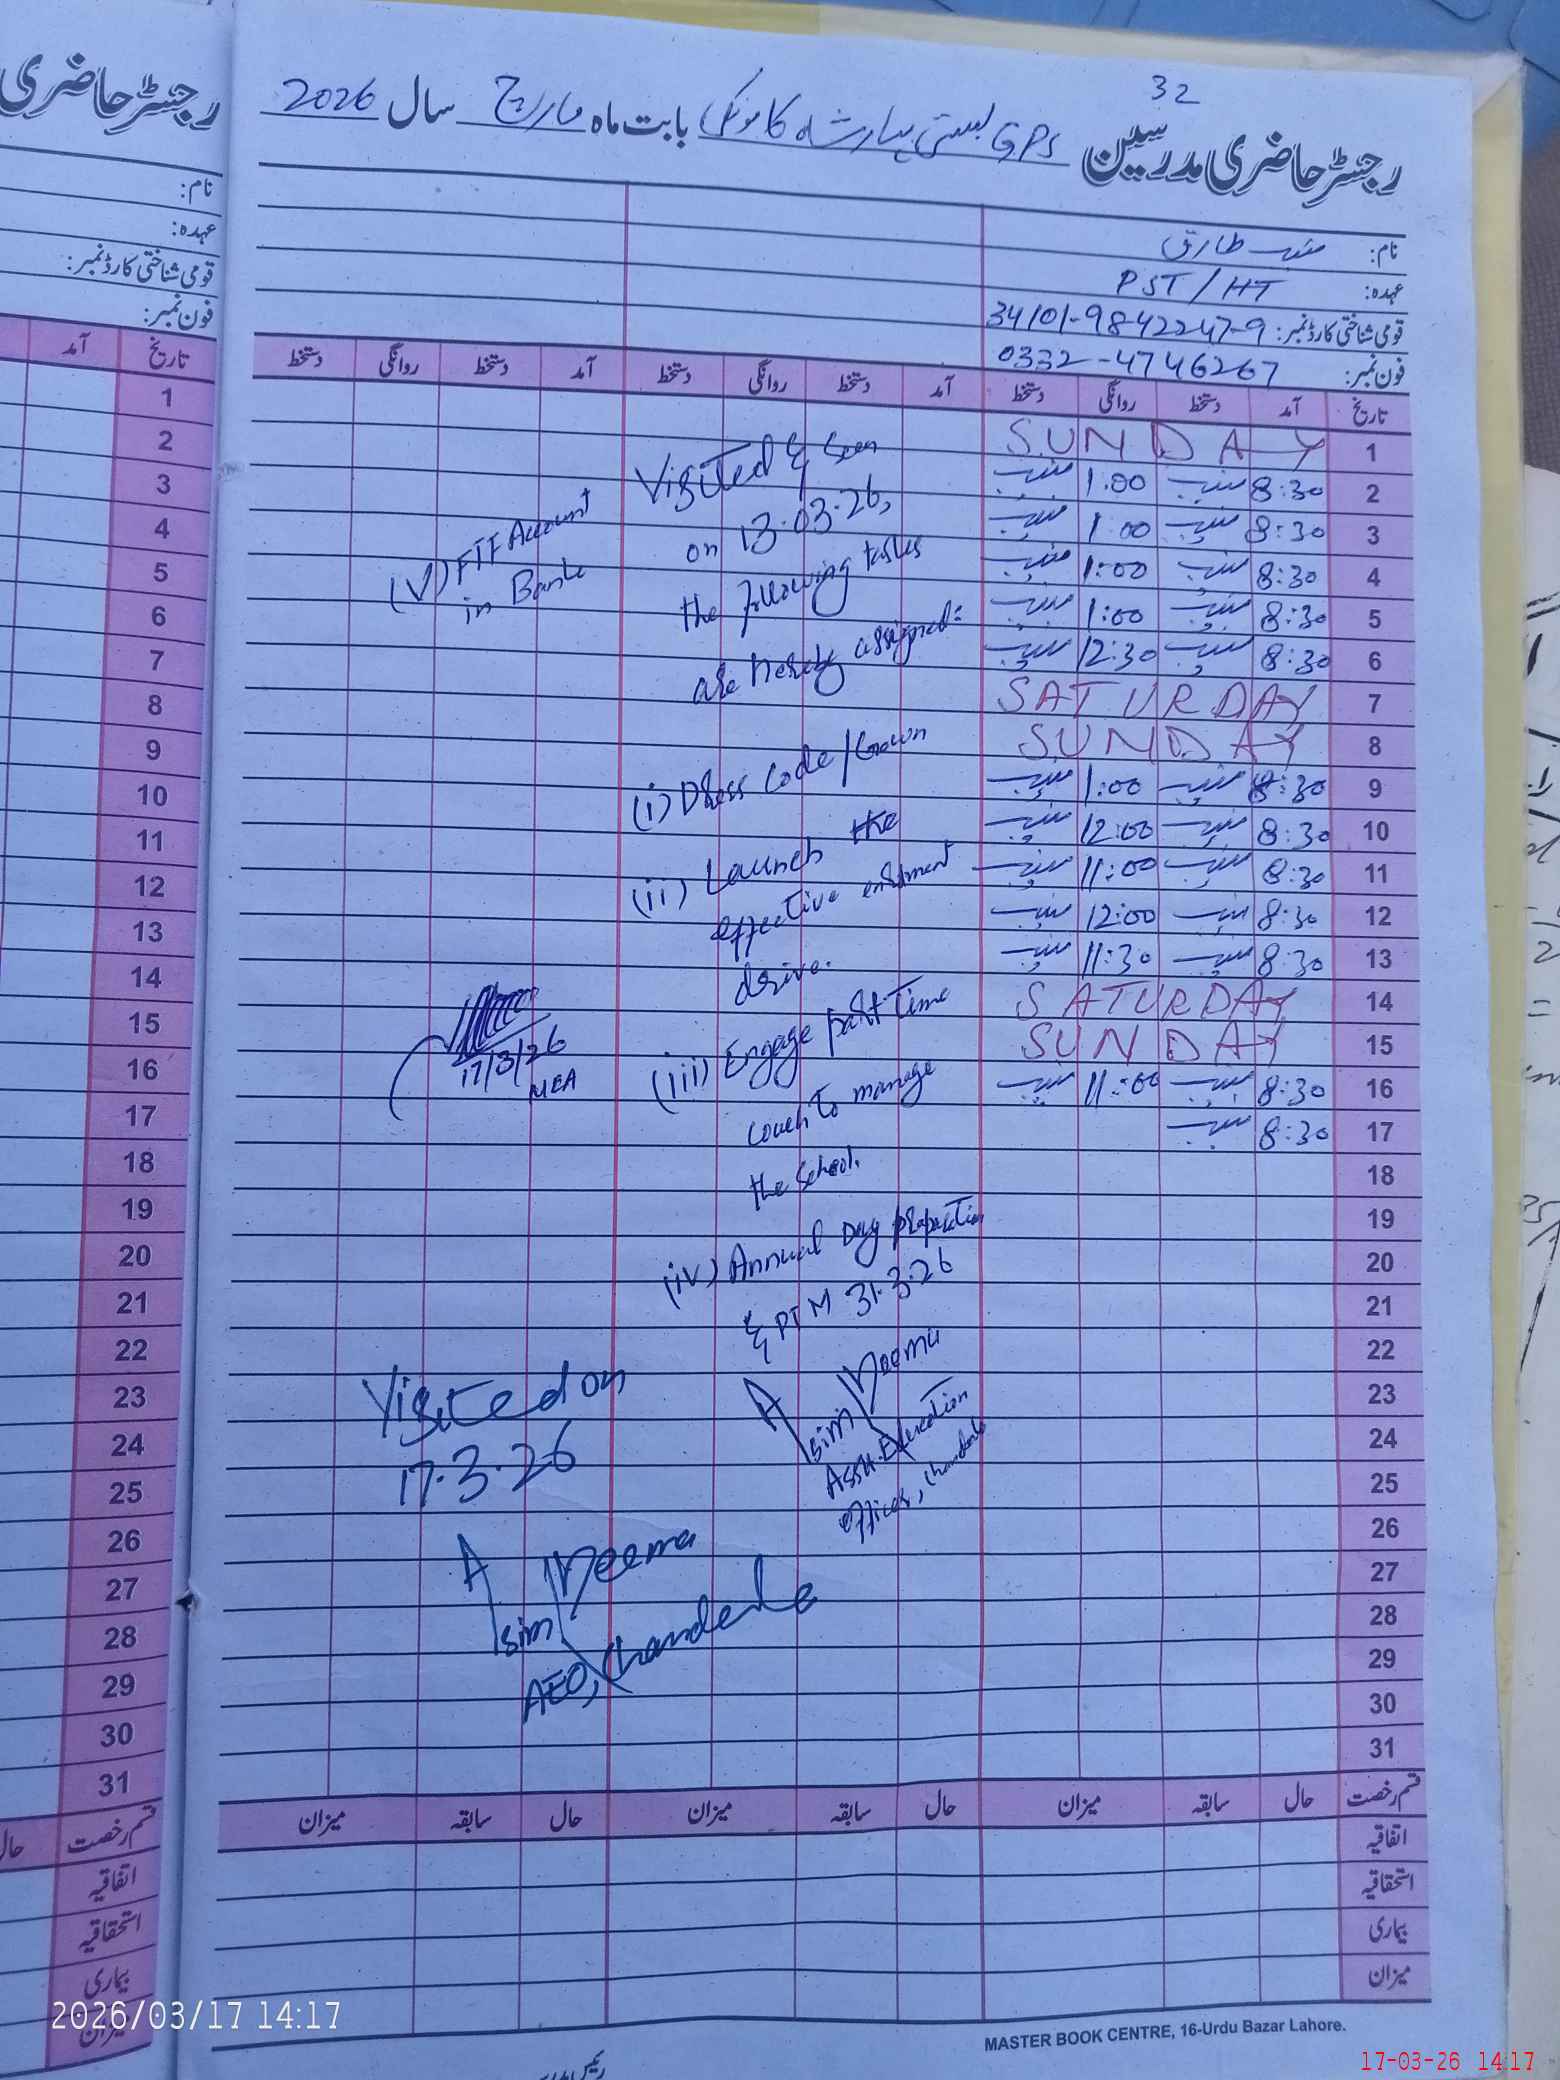 32
رجسٹر حاضری مدرسین GPS بستی پیار شاہ کا موکل بابت ماہ مارچ سال 2026
نام: منیب طارق
عہدہ: PST / HT
قومی شناختی کارڈ نمبر: 34101-9842247-9
فون نمبر: 0332-4746267
تاریخ آمد دستخط روانگی دستخط آمد دستخط روانگی دستخط آمد دستخط روانگی دستخط
1 SUNDAY
2 8:30 منیب 1:00 منیب
3 8:30 منیب 1:00 منیب
4 8:30 منیب 1:00 منیب
5 8:30 منیب 1:00 منیب
6 8:30 منیب 12:30 منیب
7 SATURDAY
8 SUNDAY
9 8:30 منیب 1:00 منیب
10 8:30 منیب 12:00 منیب
11 8:30 منیب 11:00 منیب
12 8:30 منیب 12:00 منیب
13 8:30 منیب 11:30 منیب
14 SATURDAY
15 SUNDAY
16 8:30 منیب 11:00 منیب
17 8:30 منیب
18
19
20
21
22
23
24
25
26
27
28
29
30
31
Visited & seen
on 13.03.26,
the following tasks
are hereby assigned:
(i) Dress Code/Gown
(ii) Launch the
effective enrolment
drive.
(iii) Engage part time
coach to manage
the school.
(iv) Annual Day preparation
& PTM 31.3.26
Asim Neema
Asstt. Education
Officer,
(V) FTF Account
in Bank
17/3/26
MEA
Visited on
17.3.26
Asim Neema
AEO,
قسم رخصت حال سابقہ میزان حال سابقہ میزان حال سابقہ میزان
اتفاقیہ
استحقاقیہ
بیماری
میزان
MASTER BOOK CENTRE, 16-Urdu Bazar Lahore.
رجسٹر حاضری
نام:
عہدہ:
قومی شناختی کارڈ نمبر:
فون نمبر:
تاریخ آمد
1
2
3
4
5
6
7
8
9
10
11
12
13
14
15
16
17
18
19
20
21
22
23
24
25
26
27
28
29
30
31
قسم رخصت حال
اتفاقیہ
استحقاقیہ
بیماری
میزان
2026/03/17 14:17
17-03-26 14:17